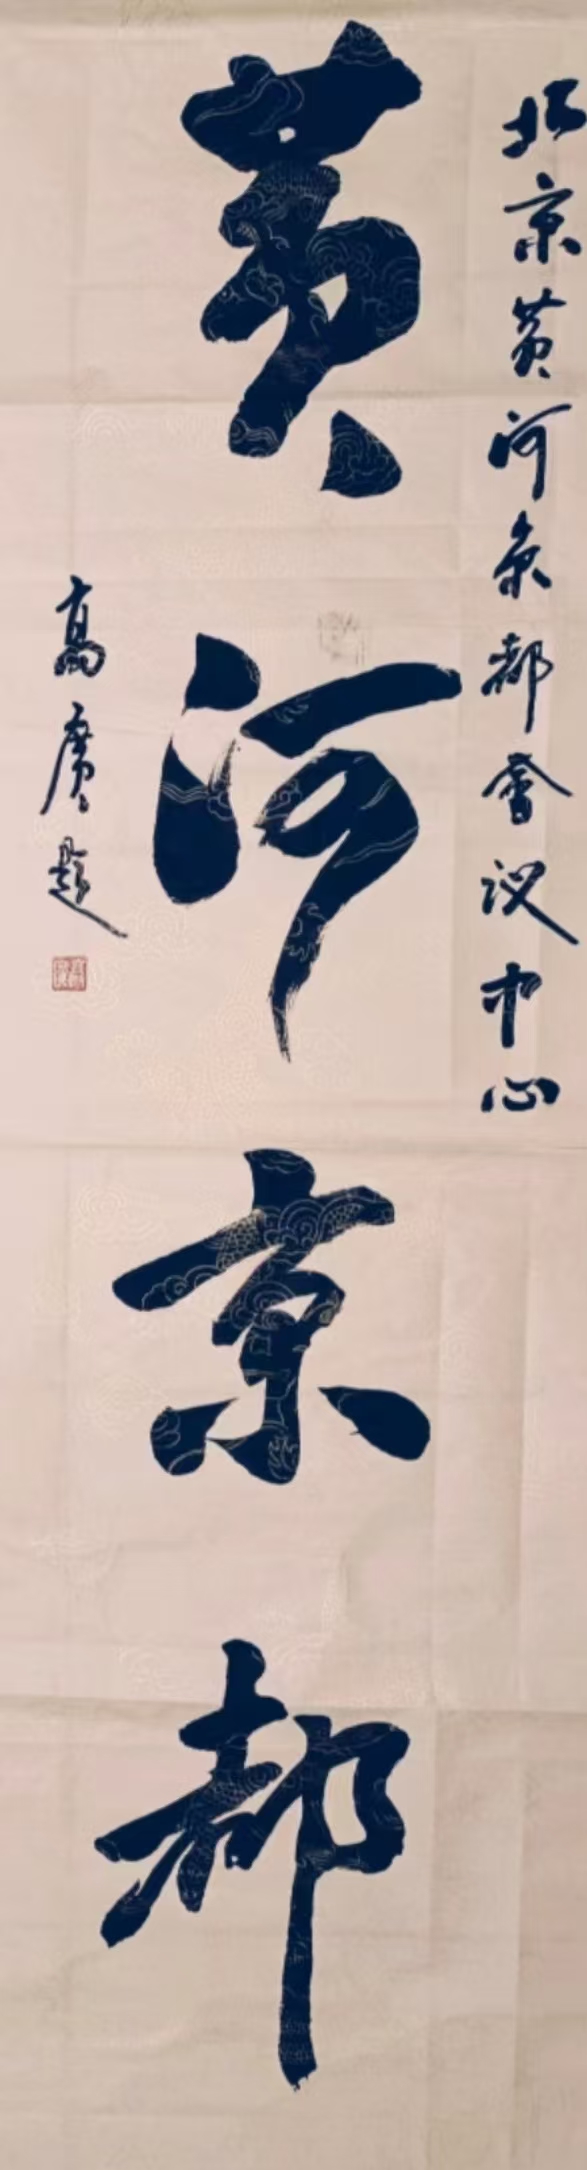 北京黄河京都會议中心
黄河京都
高廣题